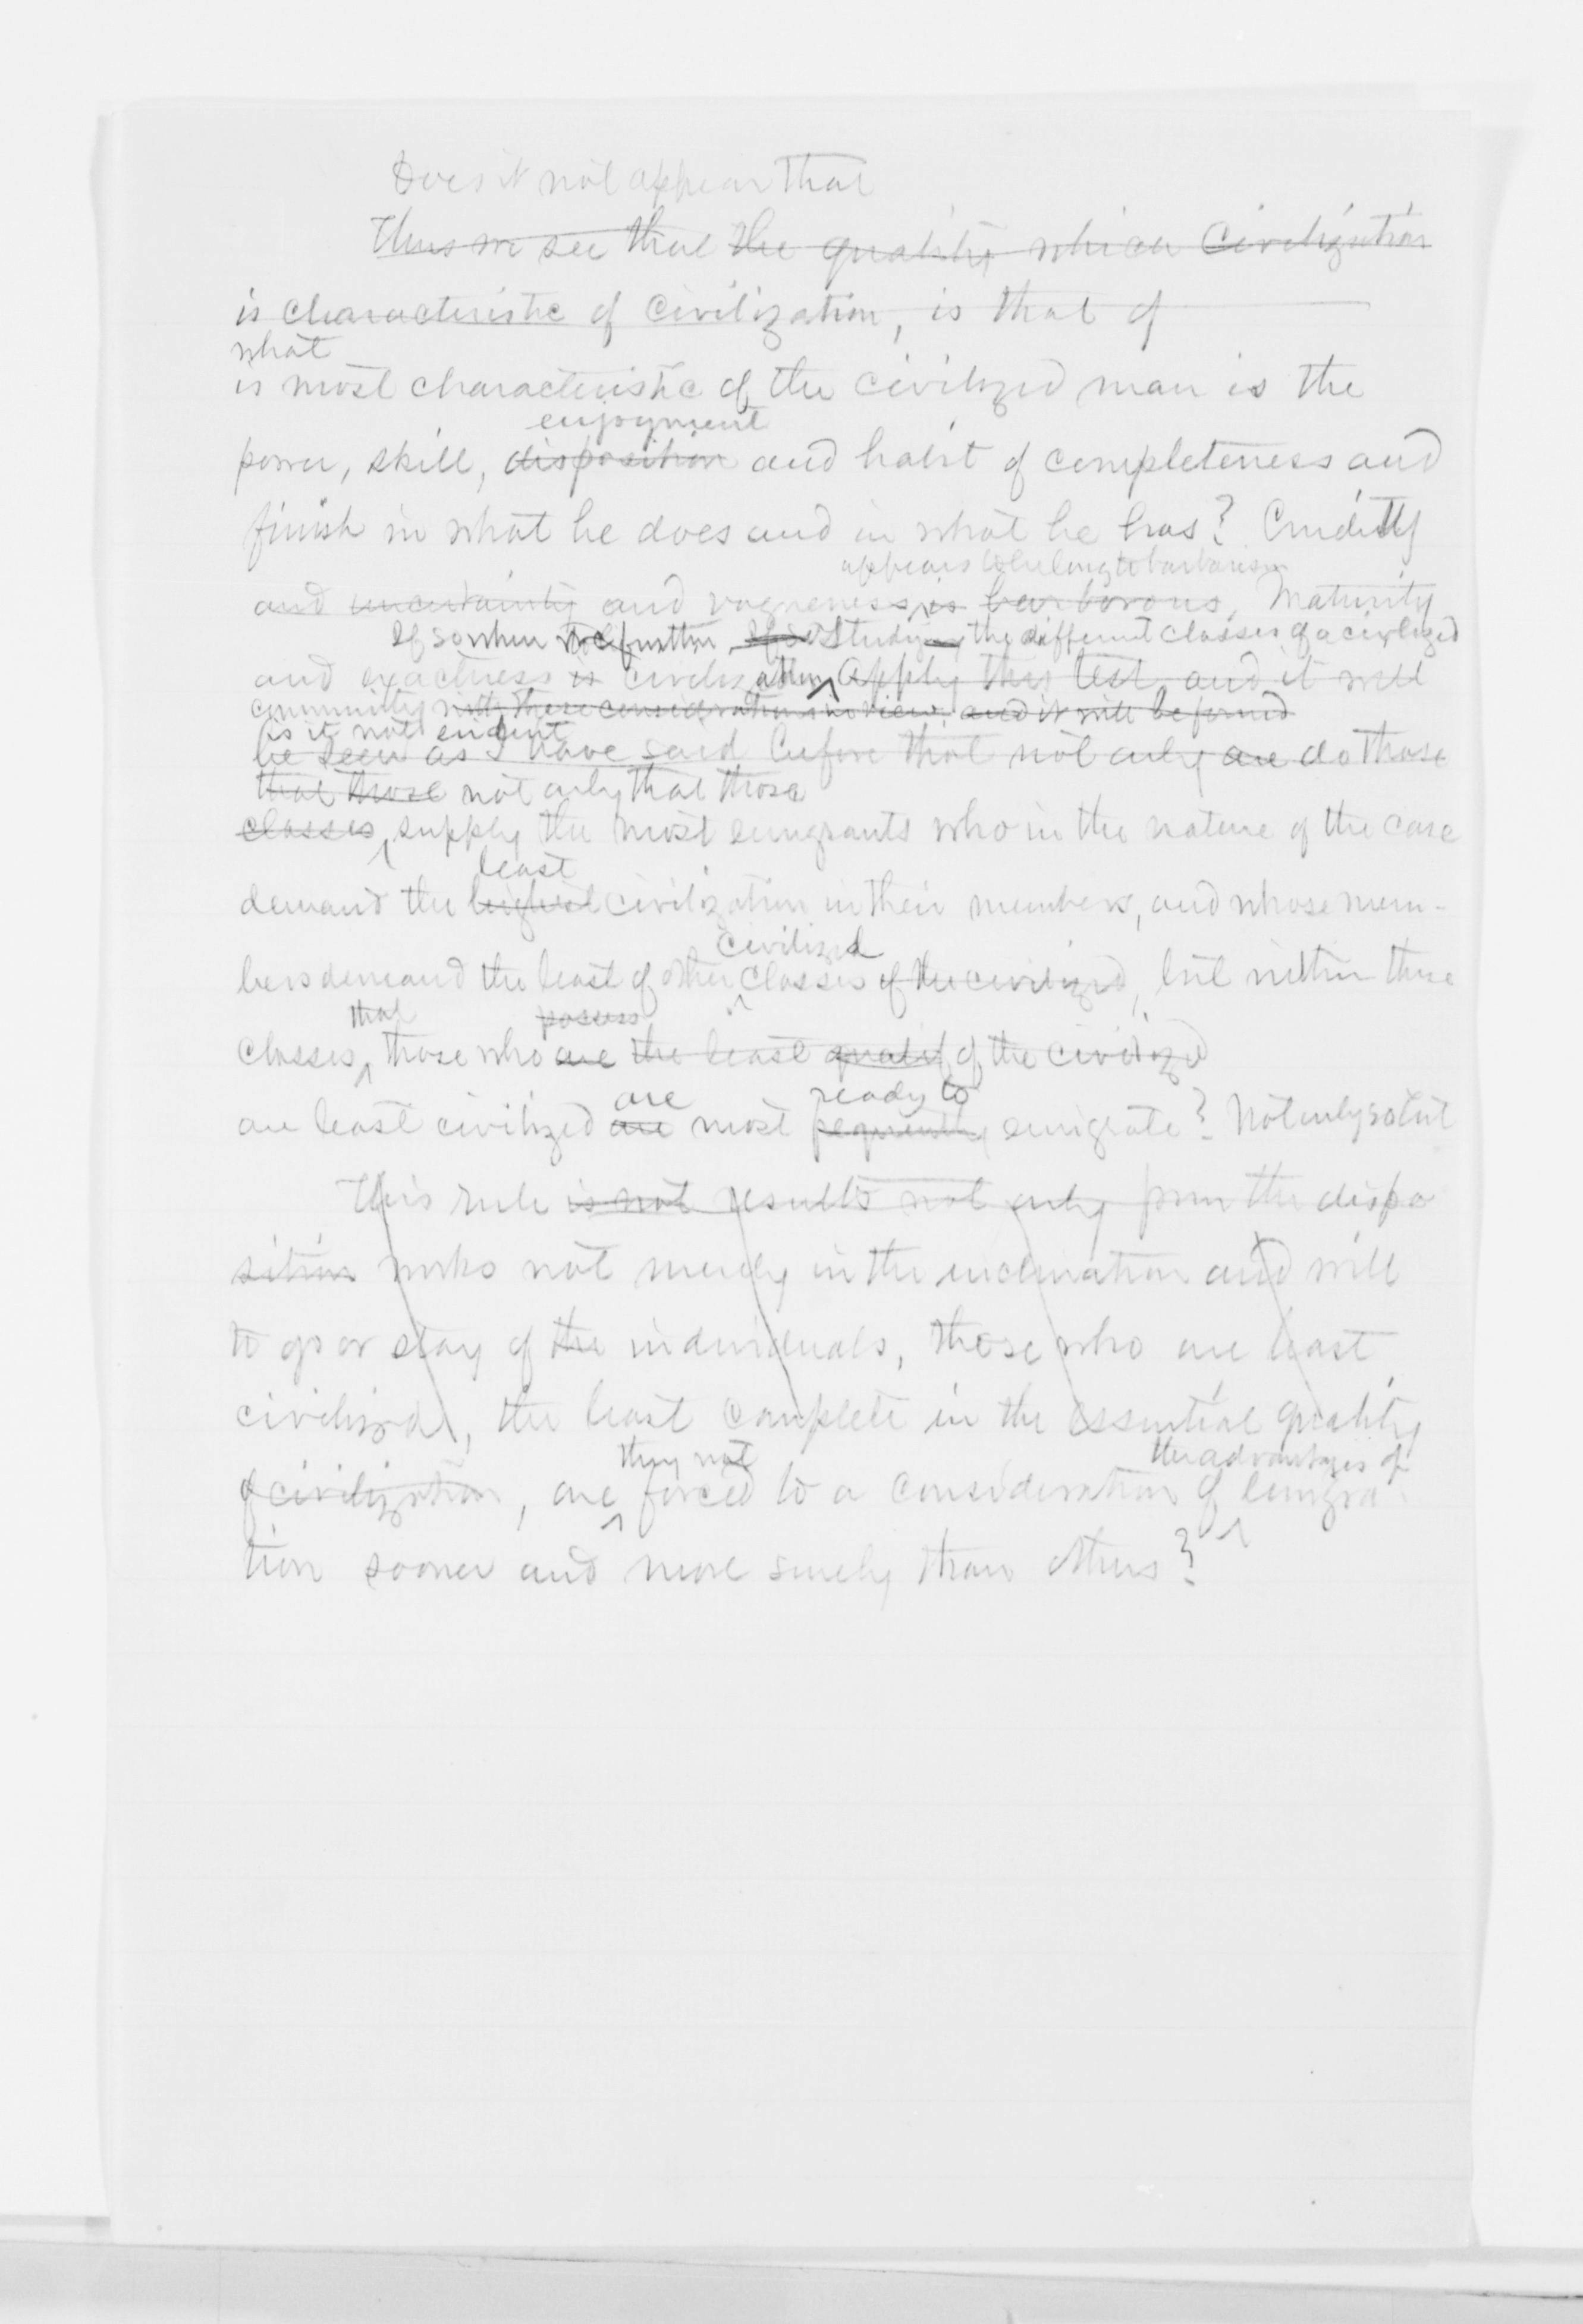 Does it not appear that
Thus we see that the quality which Civilization
is characteristic of Civilization, is that of
what
is most characteristic of the civilized man is the
enjoyment
power, skill, disposition and habit of completeness and
finish in what he does and in what he has? Crudity
appears to belong to barbarism
and uncertainty and vagueness is barbarous, Maturity
If so when we further If so Studying the different classes of a civilized
and exactness is civilization Apply this test and it will
community with these considerations in view, and it will be found
is it not evident
be seen as I have said before that not only are do those
that those not only that those
classes supply the most emigrants who in the nature of the case
least
demand the highest civilization in their members, and whose mem-
civilized
bers demand the least of other classes of the civilized, but within these
that possess
classes, those who are the least qualif of the civilized
are ready to
are least civilized are most frequently emigrate? Not only so but
This rule is not results not only from the dispo
sition works not merely in the inclination and will
to go or stay of the individuals, those who are least
civilized, the least complete in the essential quality
they not the advantages of
of civilization, are forced to a consideration of emigra-
tion sooner and more surely than others?